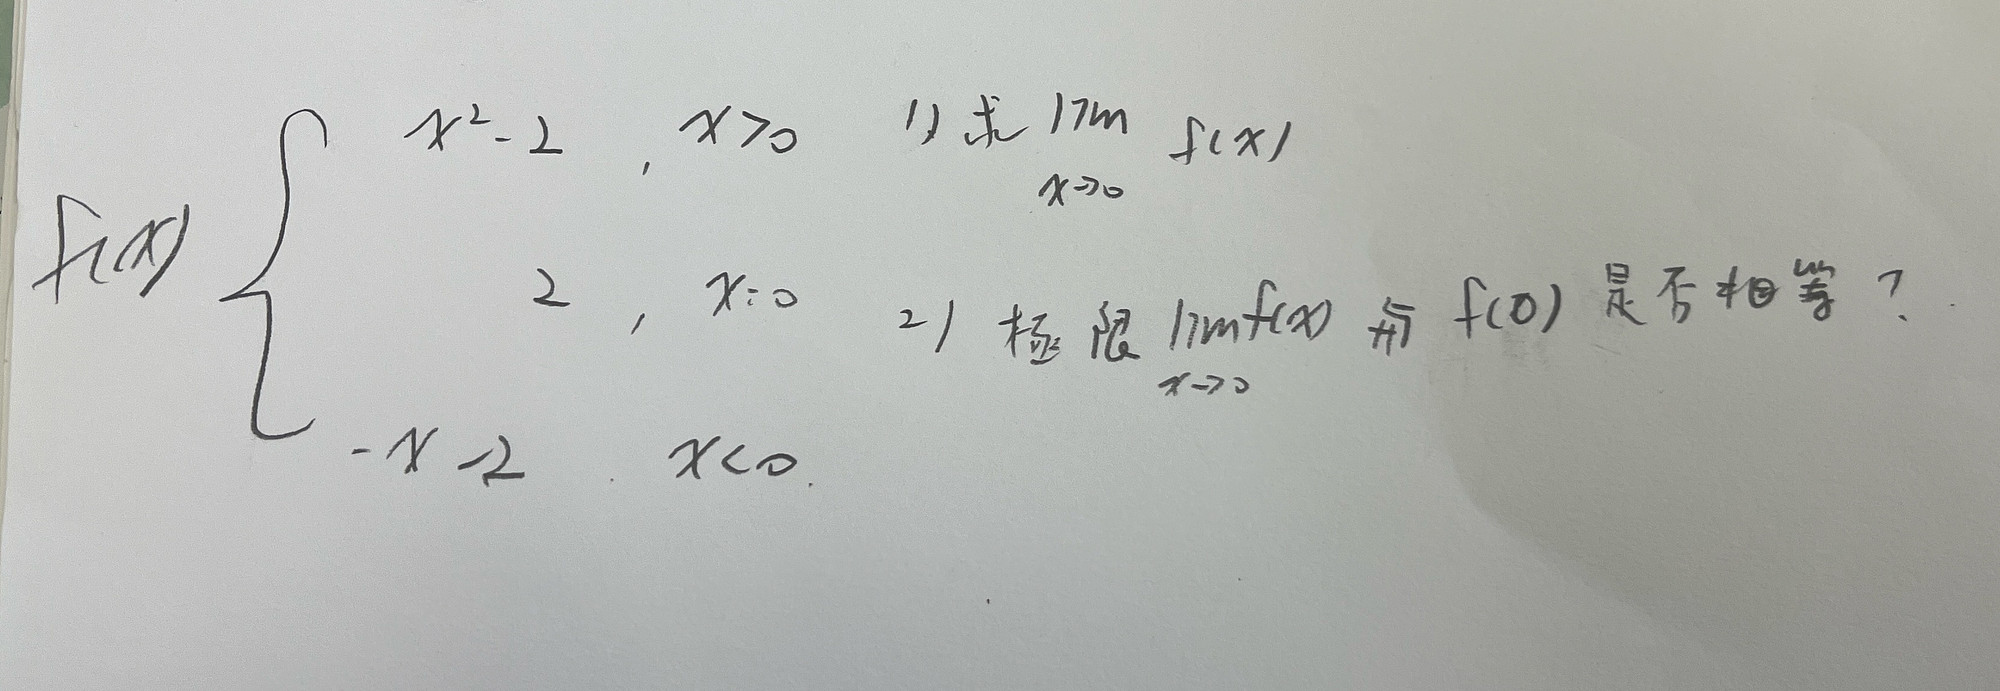 f(x) { x²-2 , x>0
2 , x=0
-x-2 . x<0.
1) 求 lim x→0 f(x)
2) 极限 lim x→0 f(x) 与 f(0) 是否相等?